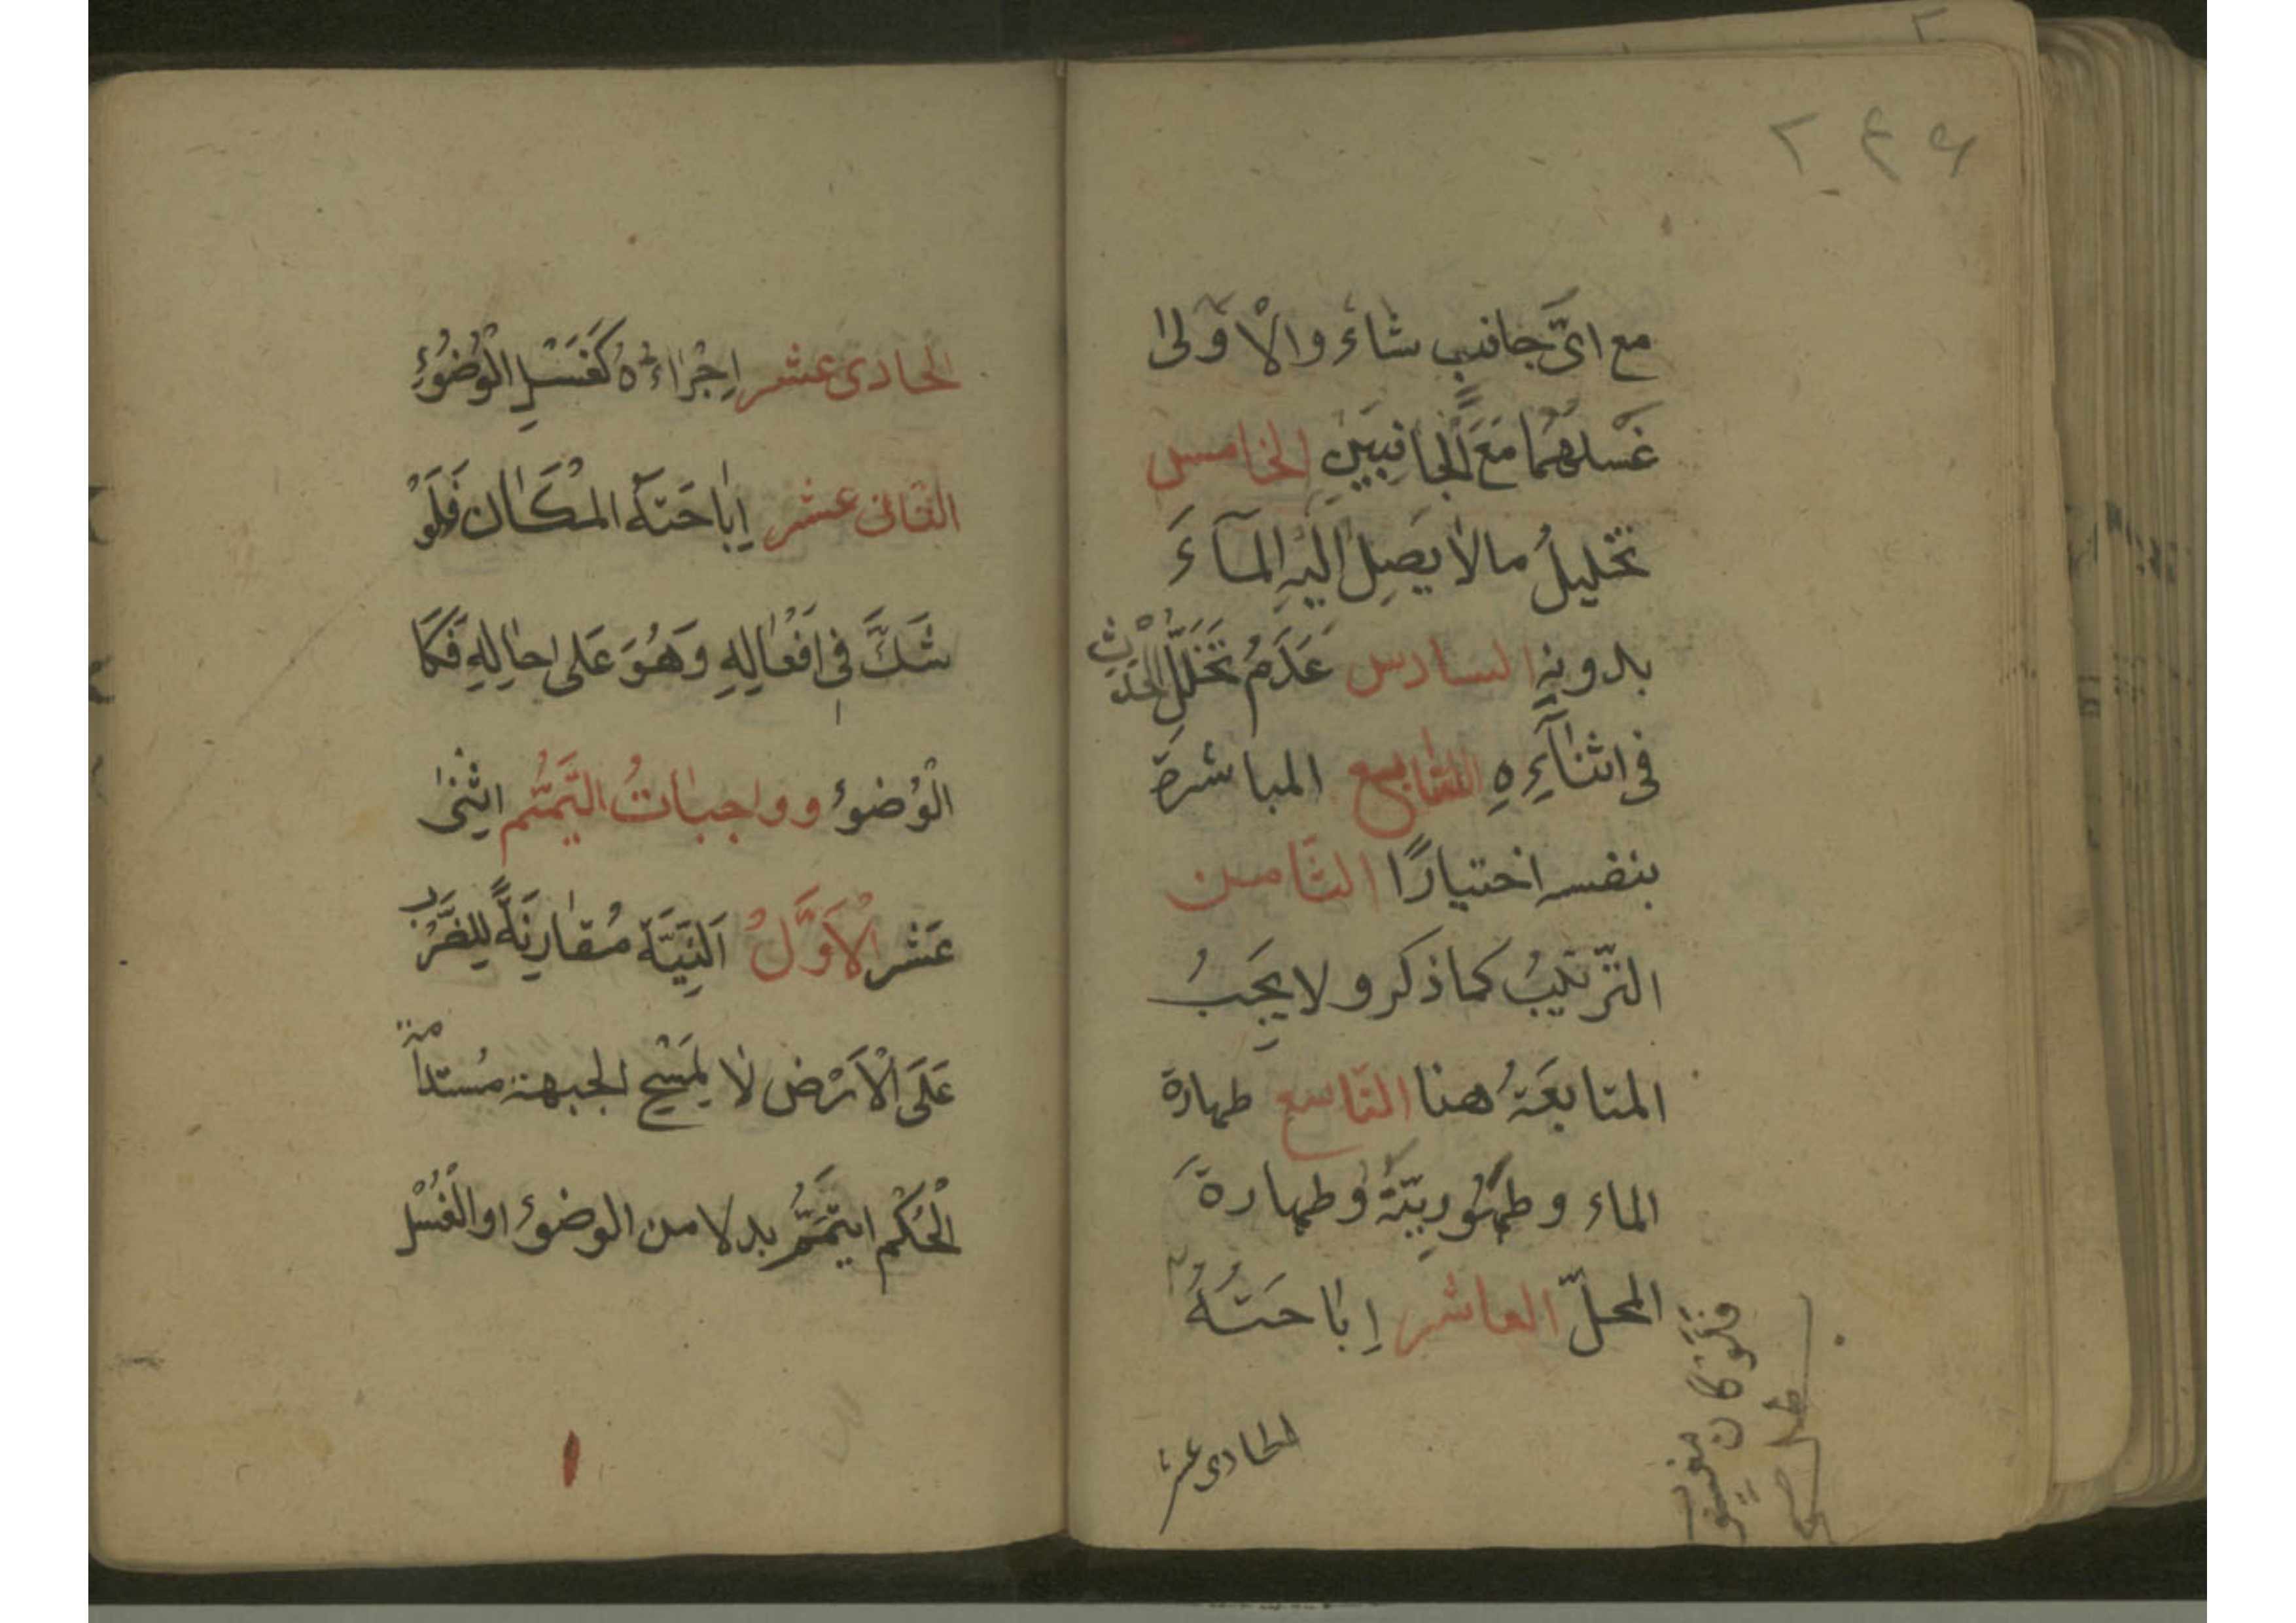 ۲۴۶
مع اىّ جانبٍ شاءَ والاَوْلىٰ
غَسْلهُما مَعَ الْجٰانِبَيْنِ الخامس
تخليلُ مالا يَصِلُ اليْهِ المآءَ
بدونهِ السادس عَدَمُ تَخَلَّلِ الْحَدَثِ
فى اثنٰآئِهِ السّابع المباشرة
بنفسه اختيارًا الثّامن
التّرتيبُ كما ذكر ولا يَجِبُ
المتابعَةُ هنا التّاسع طهارة
الماء وطَهُورِيّتَهُ وطهارةَ
المحلّ العاشر اِبٰاحَتُهُ
فلو كان مغصوبًا
الحادى عشر
الحادى عشر اِجْرٰاءُهُ كَغَسْلِ الْوُضُوْءِ
الثانى عشر اِبٰاحَتهَ المْكَٰان فَلَوْ
شَكَّ فى اَفْعٰالِهِ وَهُوَ عَلى حٰالِهِ فَكَمَا
الْوُضوءُ وواجبٰاتُ التَّيَمُّم اثْنىٰ
عَشر الْاَوَّلُ اَلنِيَّة مُقٰارِنَةً لِلضَّرْبِ
عَلَى الْاَرْض لاٰ لِمَسْحِ الجبهة مُستدامة
الْحُكْم اَتيَمَّمُ بدلا من الوضوءُ او الْغُسْل